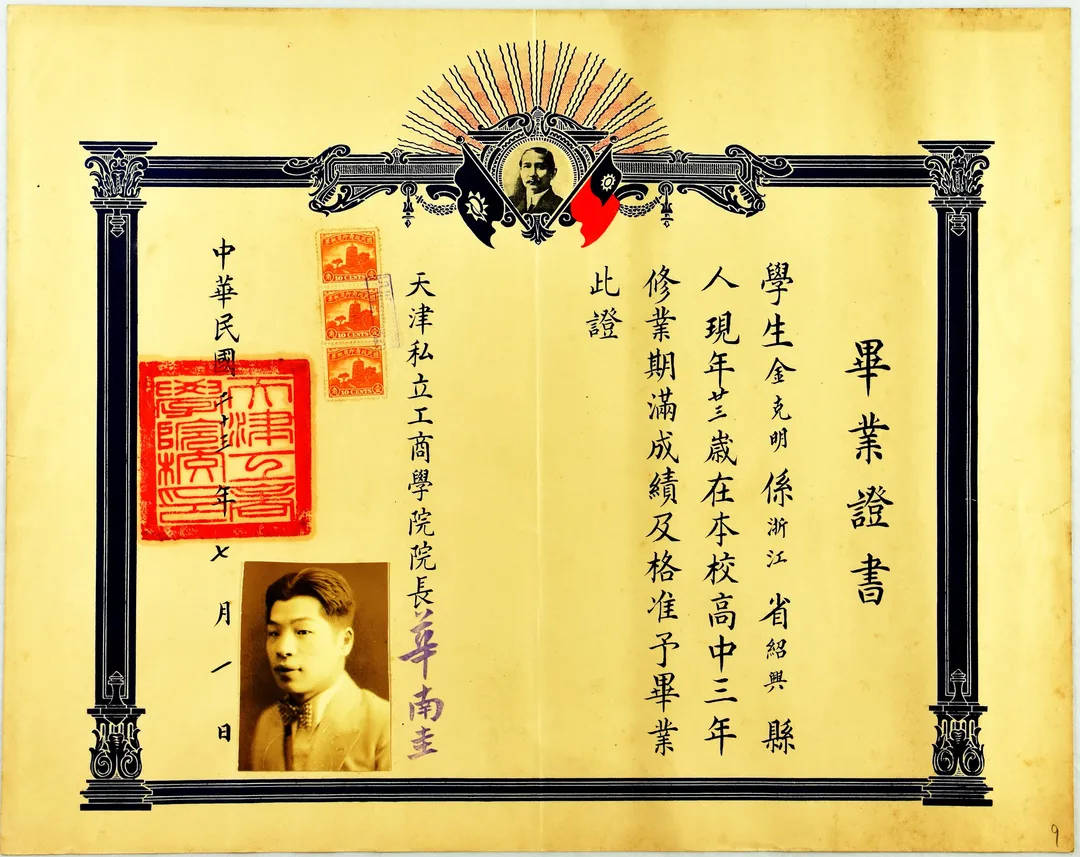 畢業證書
學生金克明係浙江省紹興縣
人現年廿三歲在本校高中三年
修業期滿成績及格准予畢業
此證
天津私立工商學院院長華南圭
中華民國二十三年七月一日
天津工商
學院校印
50 CENTS
10 CENTS
50 CENTS
9